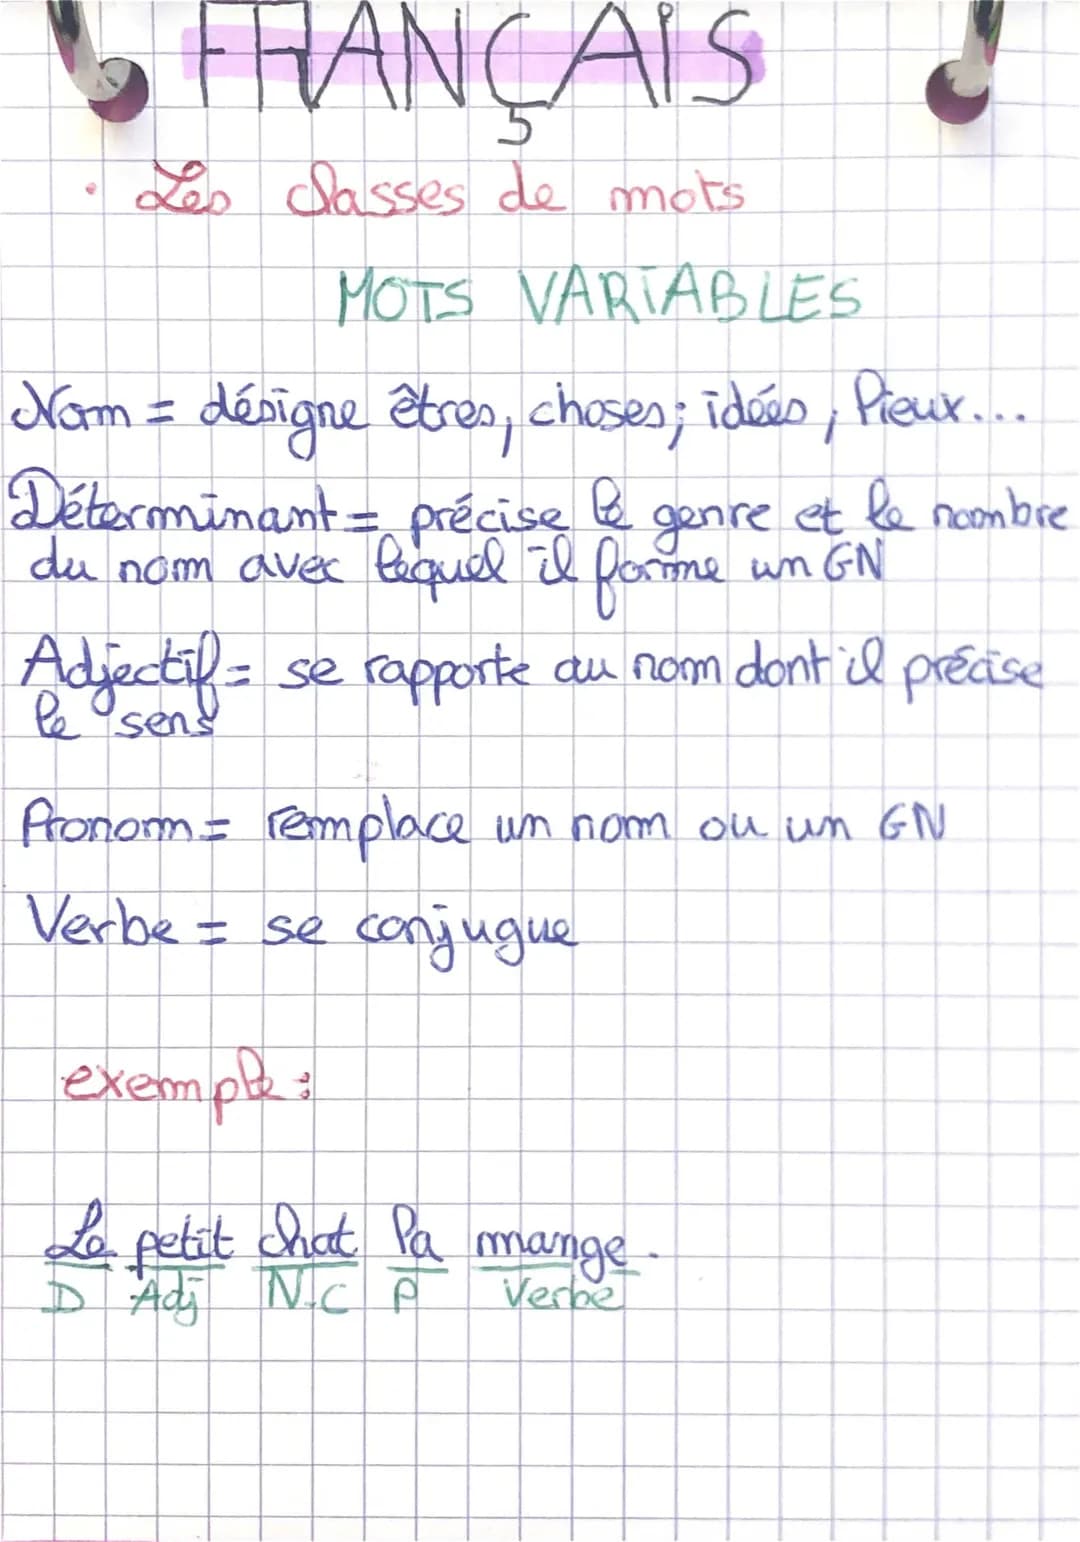 FRANÇAIS
• Les classes de mots
MOTS VARIABLES
Nom = désigne êtres, choses; idées, lieux...
Déterminant = précise le genre et le nombre
du nom avec lequel il forme un GN
Adjectif = se rapporte au nom dont il précise
le sens
Pronom = remplace un nom ou un GN
Verbe = se conjugue
exemple :
Le petit chat la mange.
D Adj N.C P Verbe